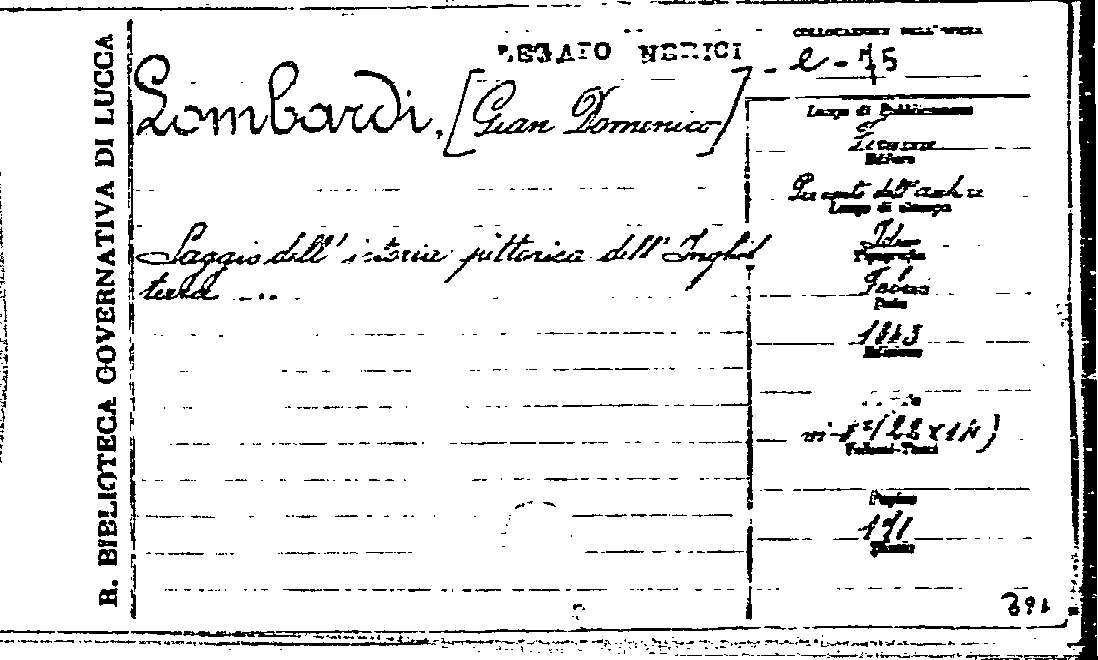 R. BIBLIOTECA GOVERNATIVA DI LUCCA
LEGATO NERICI
COLLOCAZIONE DELL'OPERA
l - 75
Lombardi, [Gian Domenico]
Saggio dell' istoria pittorica dell' Inghil
terra ...
Luogo di Pubblicazione
Firenze
Editore
Luogo di stampa
Idem
Tipografia
Data
1843
Edizione
in-8º (22 x 14)
Volumi-Tomi
Pagine
171